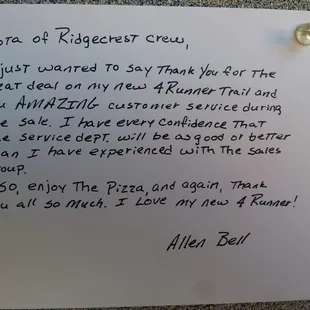 ota of Ridgecrest crew,
just wanted to say Thank You for the
eat deal on my new 4Runner Trail and
u AMAZING customer service during
e sale. I have every confidence that
e service dept. will be as good or better
an I have experienced with the sales
oup.
so, enjoy The Pizza, and again, Thank
u all so much. I Love my new 4 Runner!
Allen Bell